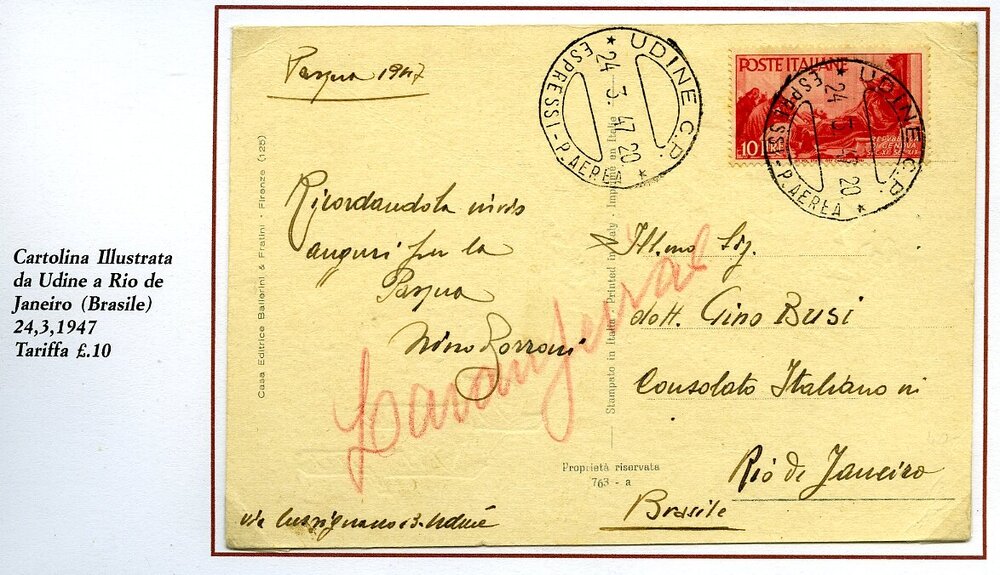 Cartolina Illustrata
da Udine a Rio de
Janeiro (Brasile)
24,3,1947
Tariffa £.10
Pasqua 1947
Casa Editrice Ballerini & Fratini - Firenze (125)
Ricordandola invio
auguri per la
Pasqua
Nino
Laranjeiras
via 13 - Udine
UDINE C.P.
24.3.47.20
ESPRESSI-P.AEREA
POSTE ITALIANE
10 LIRE
UDINE C.P.
24 3 20
ESPRESSI-P.AEREA
Stampato in Italia - Printed in Italy - Imprimé en Italie
Ill.mo Sig.
dott. Gino Busi
Consolato Italiano in
Rio de Janeiro
Brasile
Proprietà riservata
763 - a